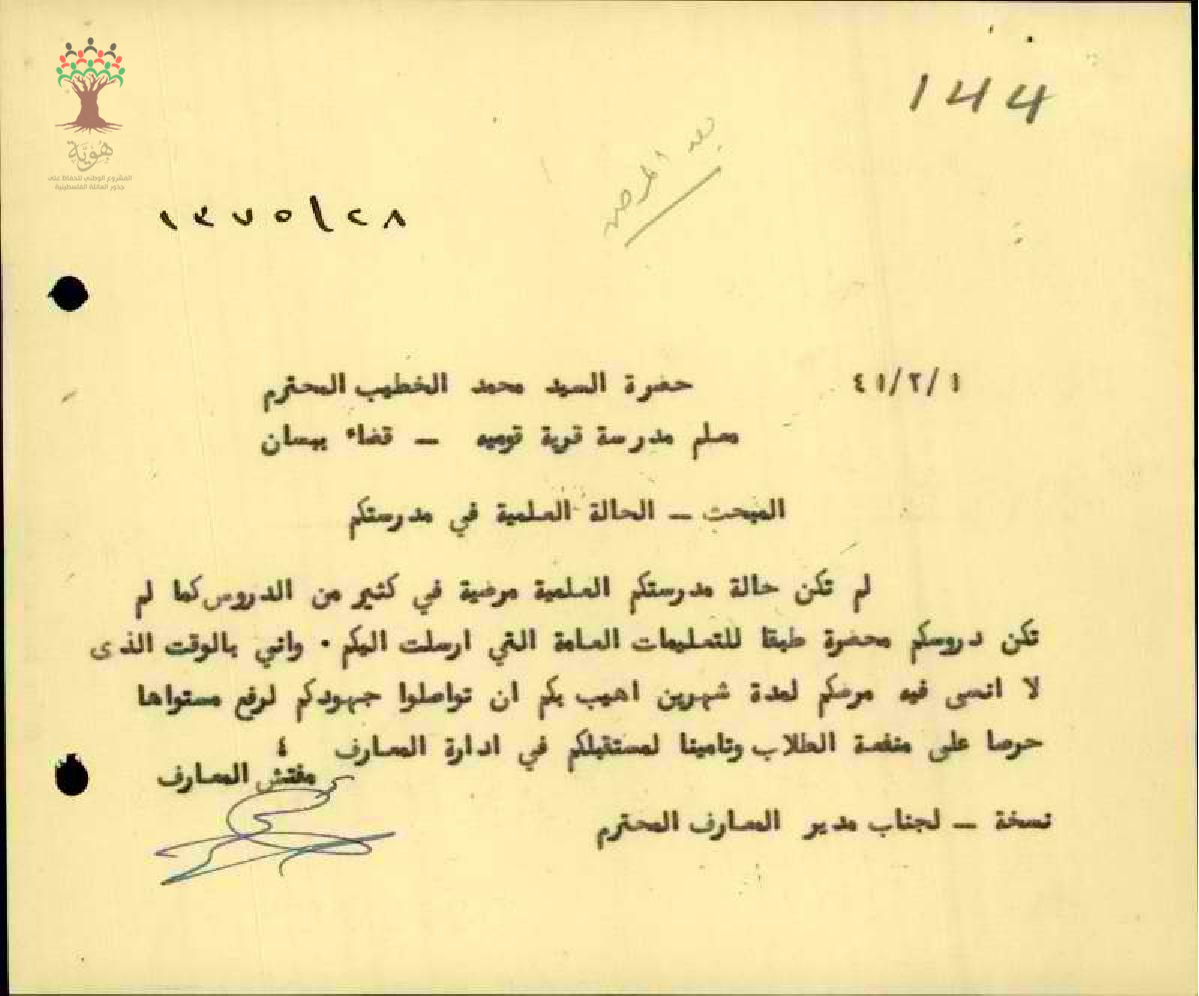 هوية
المشروع الوطني للحفاظ على
جذور العائلة الفلسطينية
144
١٣٧٥/٢٨
٤١/٢/١
حضرة السيد محمد الخطيب المحترم
معلم مدرسة قرية قوميه – قضاء بيسان
المبحث – الحالة العلمية في مدرستكم
لم تكن حالة مدرستكم العلمية مرضية في كثير من الدروس كما لم
تكن دروسكم محضرة طبقا للتعليمات العامة التي ارسلت اليكم . واني بالوقت الذى
لا انسى فيه مرضكم لمدة شهرين اهيب بكم ان تواصلوا جهودكم لرفع مستواها
حرصا على منفعة الطلاب وتامينا لمستقبلكم في ادارة المعارف
مفتش المعارف
نسخة – لجناب مدير المعارف المحترم